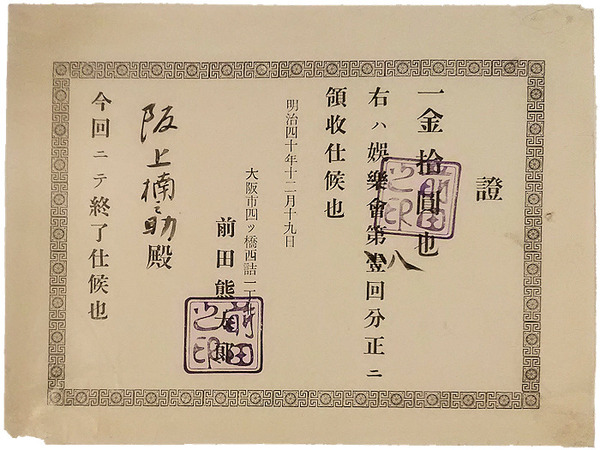 證
一金拾圓也
右ハ娯樂會第壹回分正ニ
八
領收仕候也
明治四十年十二月十九日
大阪市四ツ橋西詰一丁
前田熊太郎
前田之印
阪上楠之助殿
今回ニテ終了仕候也
前田之印